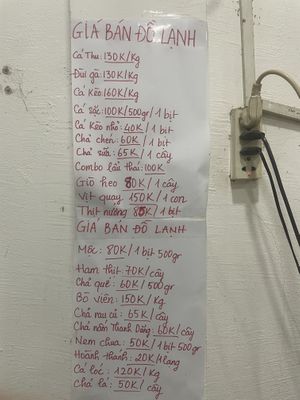 GIÁ BÁN ĐỒ LẠNH
Cá Thu: 130K/Kg
Đùi gà: 130K/Kg
Cá Kèo: 160K/Kg
Cá sặc: 100K/500gr/1 bịt
Cá Kèo nhỏ: 40K/1 bịt
Chả chén: 60K/1 bịt
Chả sữa: 65K/1 cây
Combo lẩu thái: 100K
Giò heo 80K/1 cây
Vịt quay 150K/1 con
Thịt nướng 85K/1 bịt
GIÁ BÁN ĐỒ LẠNH
Mộc: 80K/1 bịt 500gr
Ham thịt: 70K/cây
Chả quế: 60K/500gr
Bò viên: 150K/Kg
Chả ray cá: 65K/cây
Chả nấm Thanh Dũng: 60K/cây
Nem chua: 50K/1 bịt 500gr
Hoành thánh: 20K/1 lang
Cá lóc: 120K/Kg
Chả lá: 50K/cây